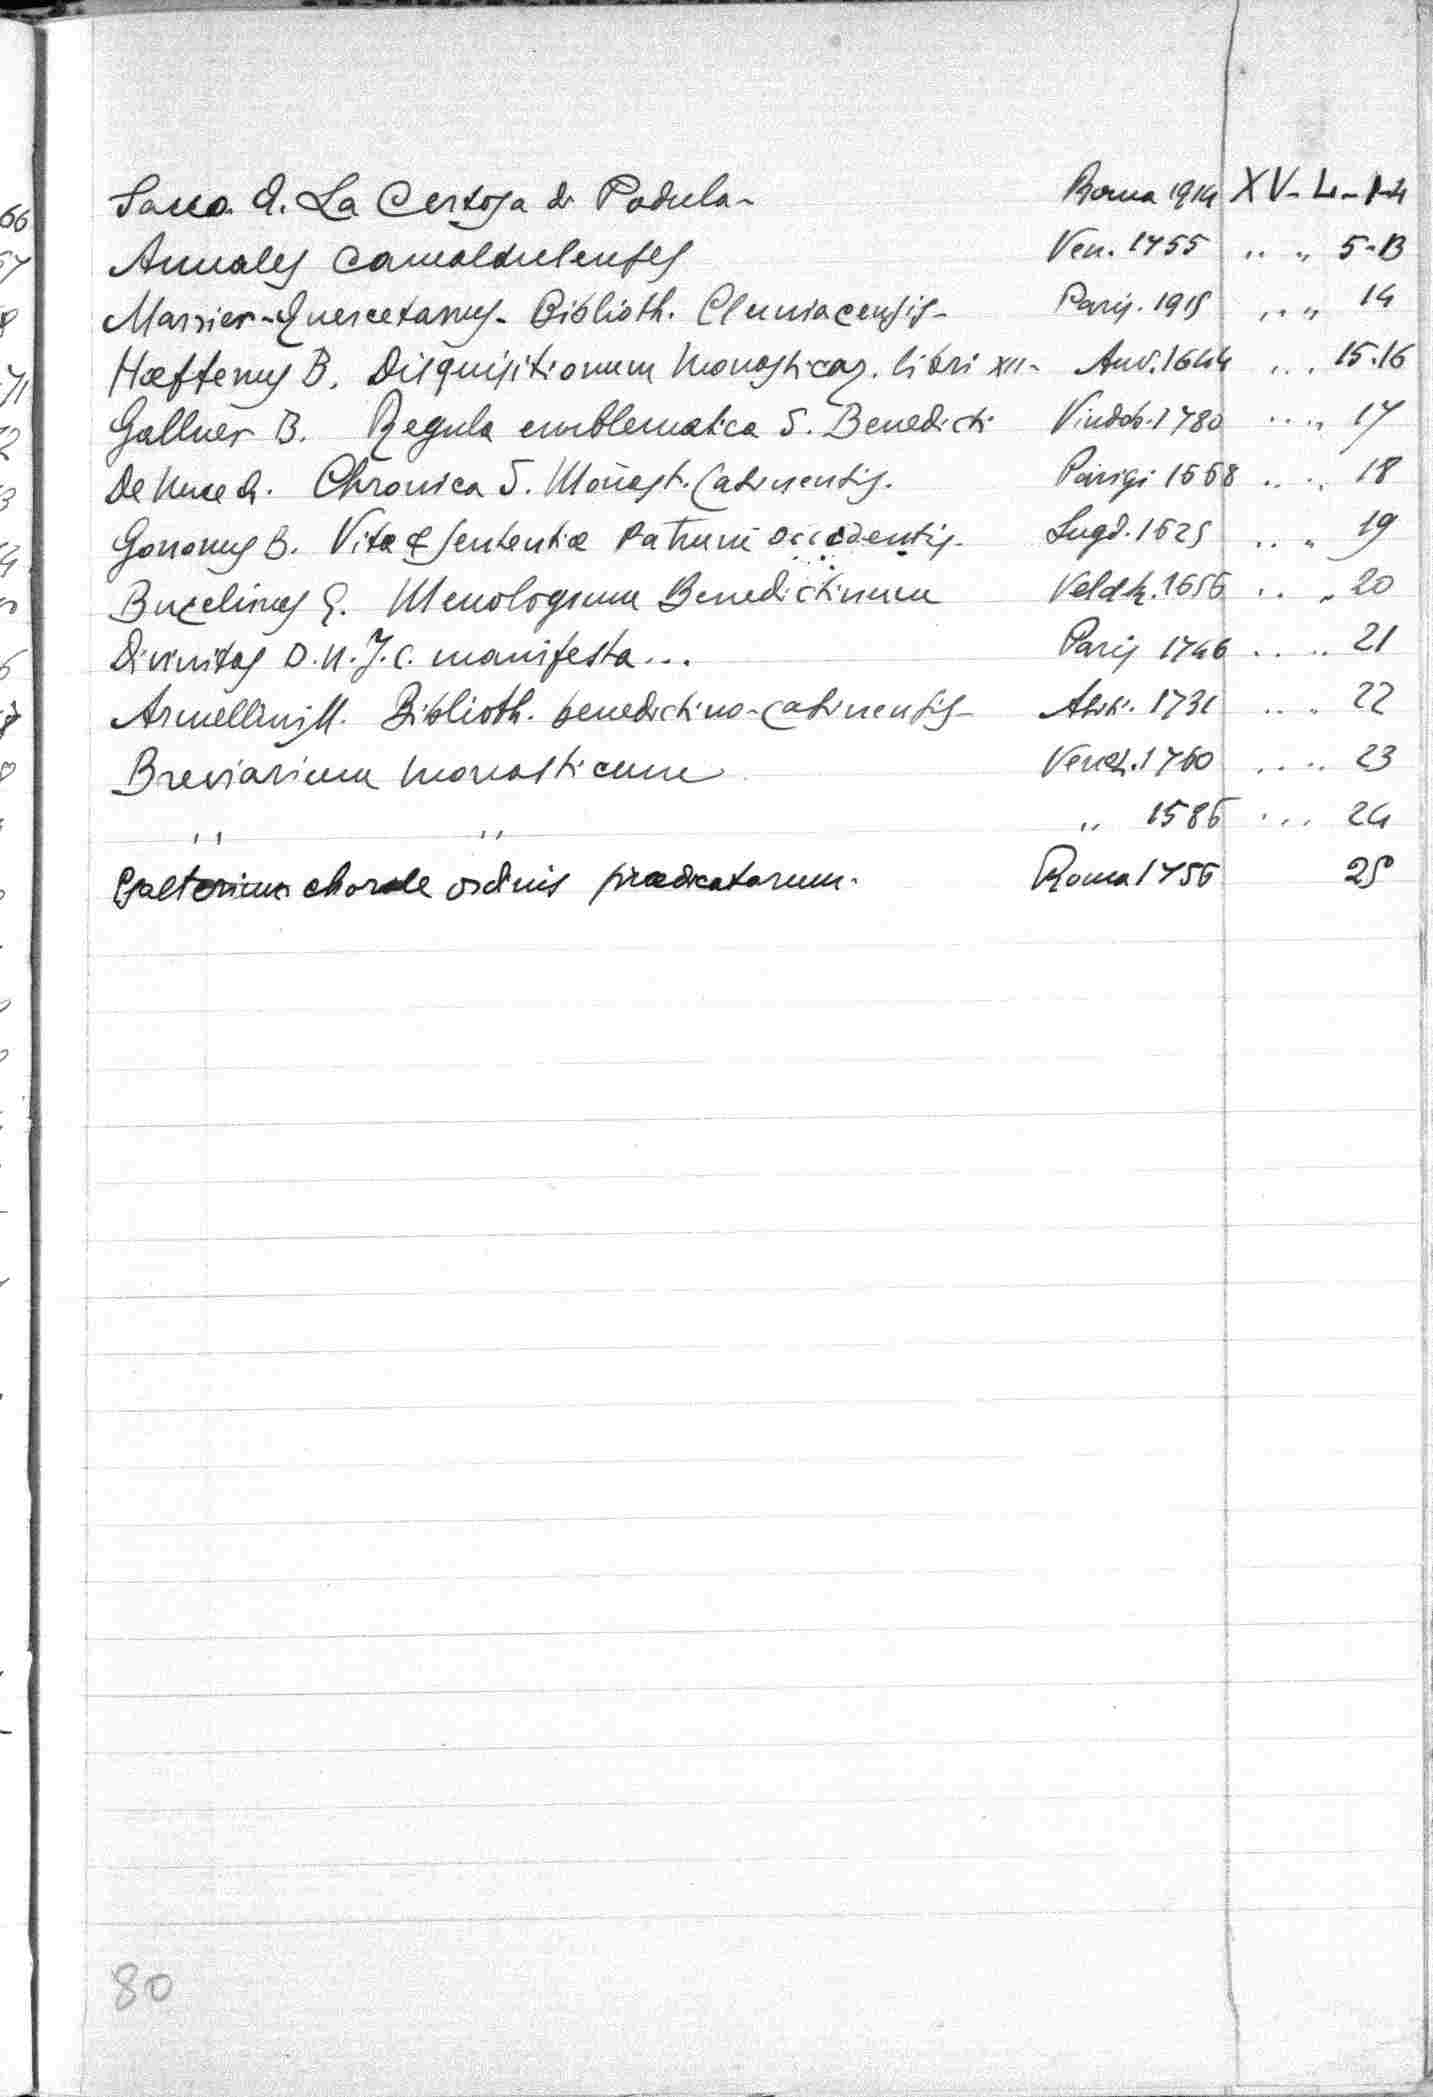 Sacco A. La Certosa di Padula - Roma 1914 XV - L - 1-4
Annales camaldulenses Ven. 1755 " " 5-13
Marrier - Quercetanus - Biblioth. Cluniacensis - Paris. 1915 " " 14
Hæftenus B. Disquisitionum Monasticar. libri XII - Anv. 1644 " " 15.16
Gallner B. Regula emblematica S. Benedicti Vindob. 1780 " " 17
De Nuce A. Chronica S. Monast. Casinensis. Parigi 1668 " " 18
Gononus B. Vitæ & sententiæ Patrum occidentis - Lugd. 1625 " " 19
Bucelinus G. Menologium Benedictinum Veldk. 1656 " " 20
Divinitas D.N.J.C. manifesta ... Paris 1746 " " 21
Armellini M. Biblioth. benedictino-casinensis - Assisi. 1731 " " 22
Breviarium monasticum Venet. 1760 " " 23
" " " 1586 " " 24
Psalterium chorale ordinis prædicatorum. Roma 1756 25
80